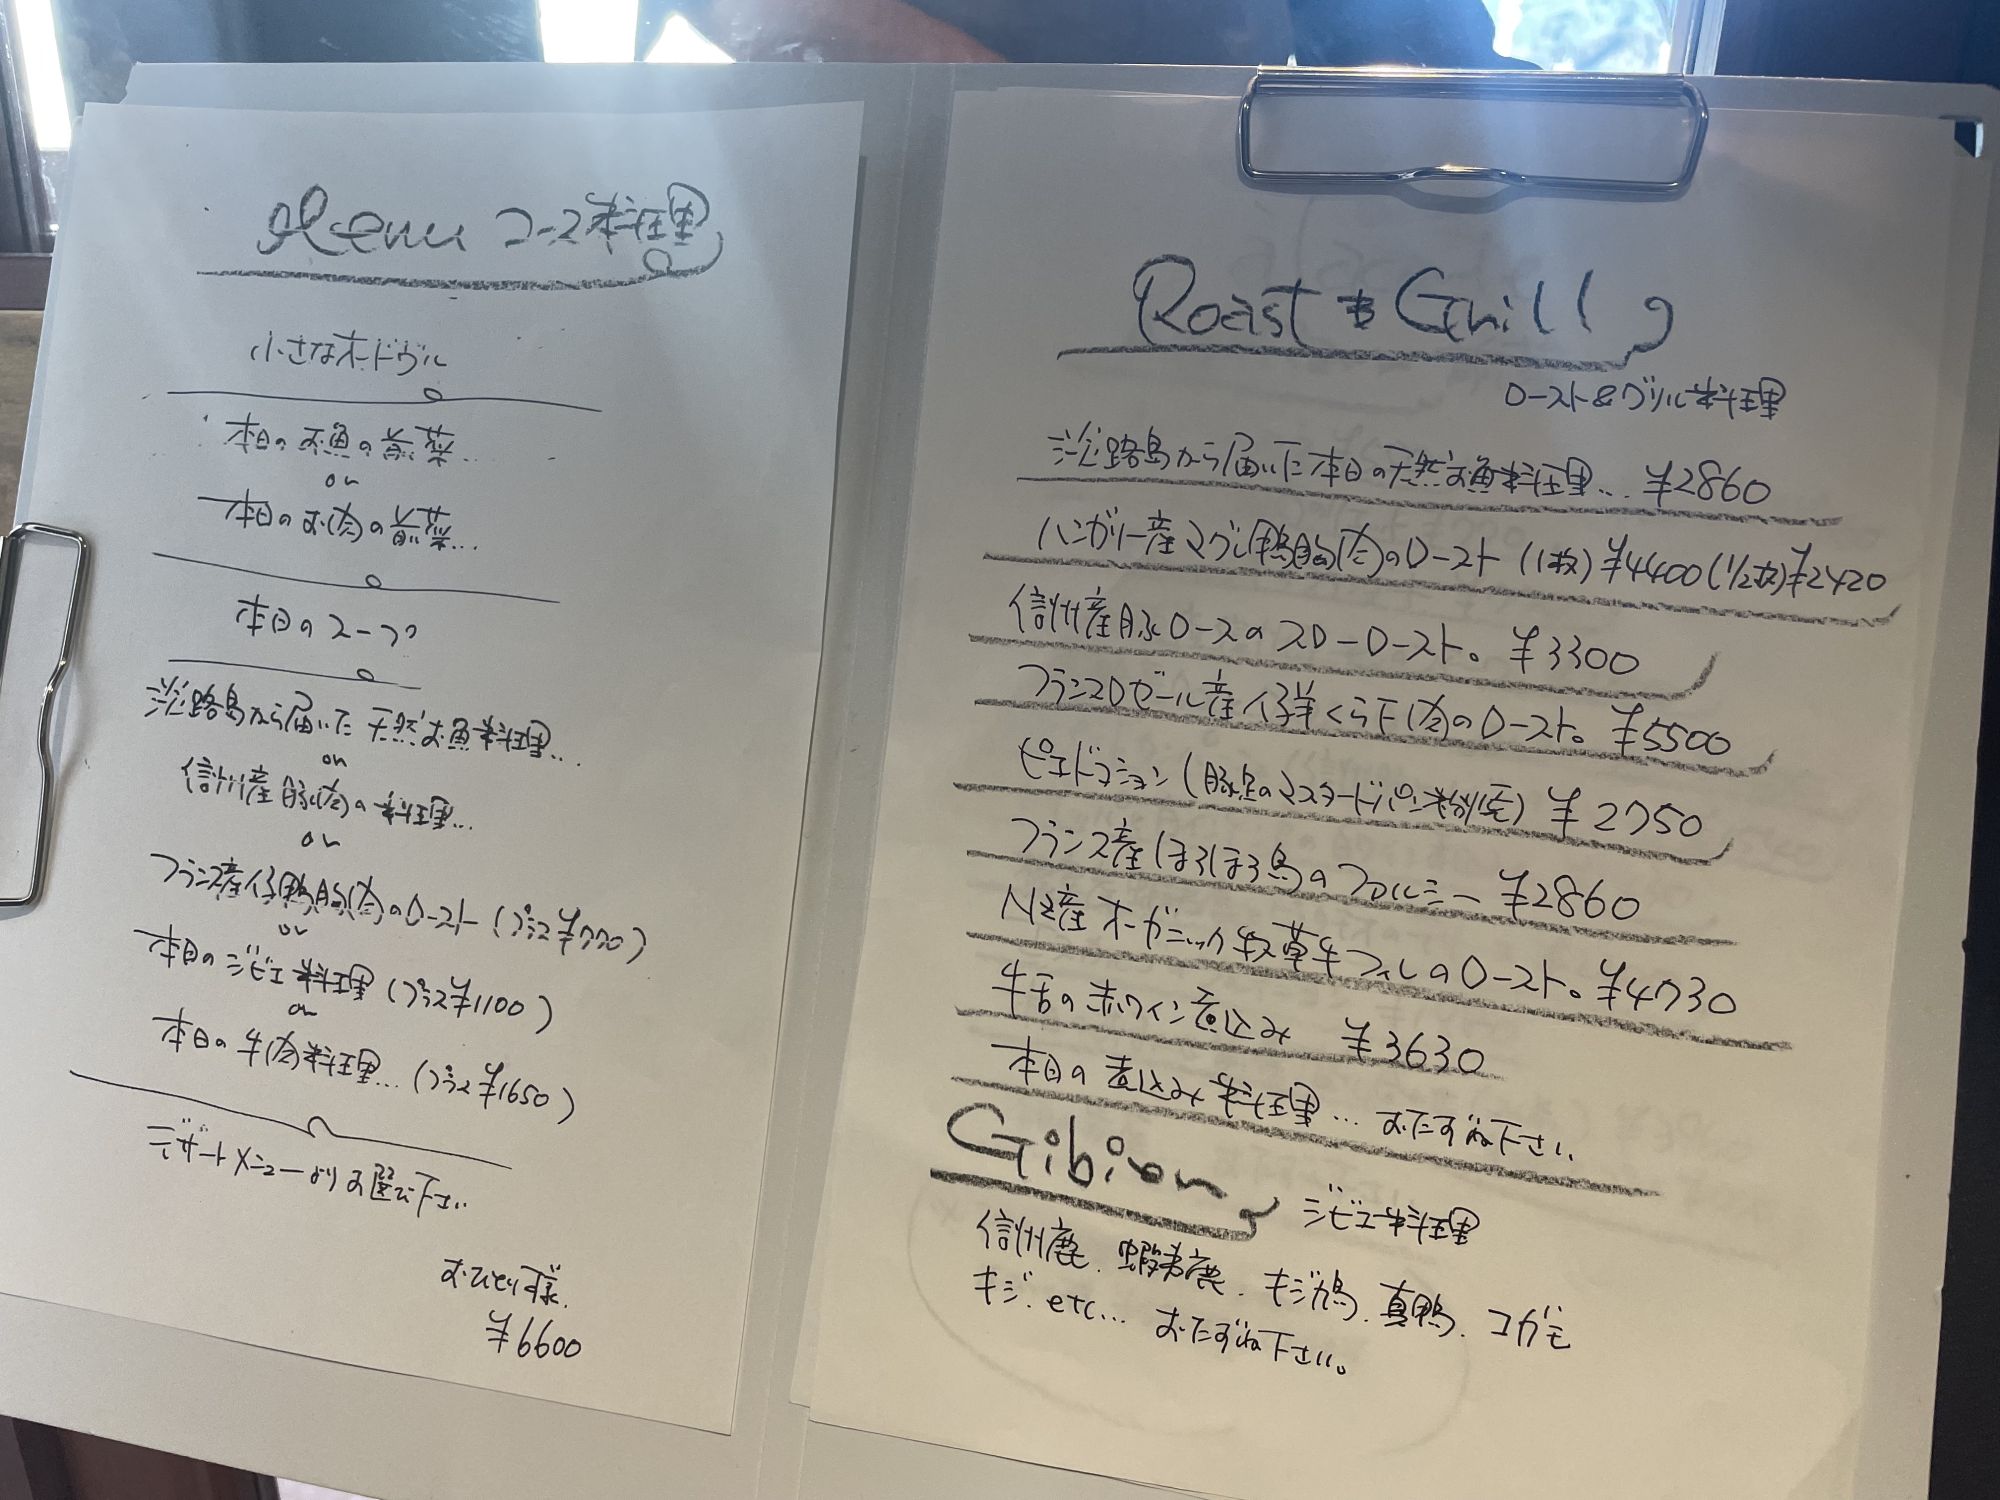 Menu コース料理
小さなオードヴル
本日のお魚の前菜...
or
本日のお肉の前菜...
本日のスープ
淡路島から届いた天然お魚料理...
or
信州産豚肉の料理...
or
フランス産仔鴨胸肉のロースト (プラス¥770)
or
本日のジビエ料理 (プラス¥1100)
or
本日の牛肉料理... (プラス¥1650)
デザートメニューよりお選び下さい
おひとり様.
¥6600
Roast & Grill
ロースト&グリル料理
淡路島から届いた本日の天然お魚料理... ¥2860
ハンガリー産マグレ鴨胸肉のロースト (1枚) ¥4400 (1/2枚) ¥2420
信州産豚ロースのスローロースト。 ¥3300
フランスロゼール産仔羊くら下肉のロースト。 ¥5500
ピエドコション (豚足のマスタードパン粉焼) ¥2750
フランス産ほろほろ鳥のファルシー ¥2860
NZ産オーガニック牧草牛フィレのロースト。 ¥4730
牛舌の赤ワイン煮込み ¥3630
本日の煮込み料理... おたずね下さい.
Gibier
ジビエ料理
信州鹿. 蝦夷鹿. キジ鳩. 真鴨. コガモ
キジ. etc... おたずね下さい。